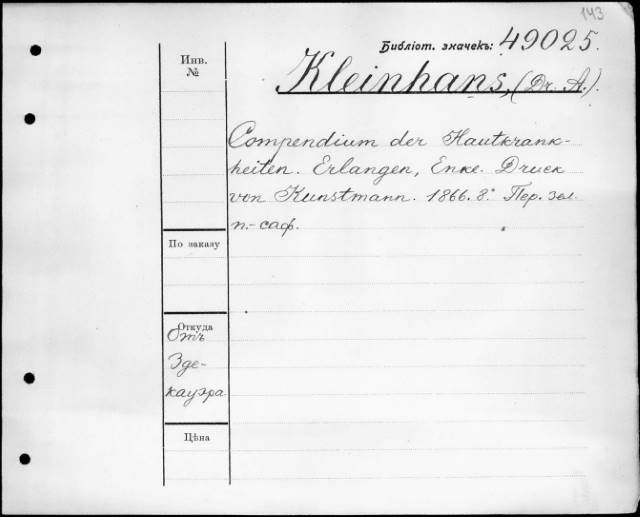 143
Библіот. значекъ: 49025.
Инв.
№
Kleinhans, (Dr. A.).
Compendium der Hautkrank-
heiten. Erlangen, Enke. Druck
von Kunstmann. 1866. 8.° Пер. зел.
п.-саф.
По заказу
Откуда
Отъ
Эде-
кауэра
Цѣна